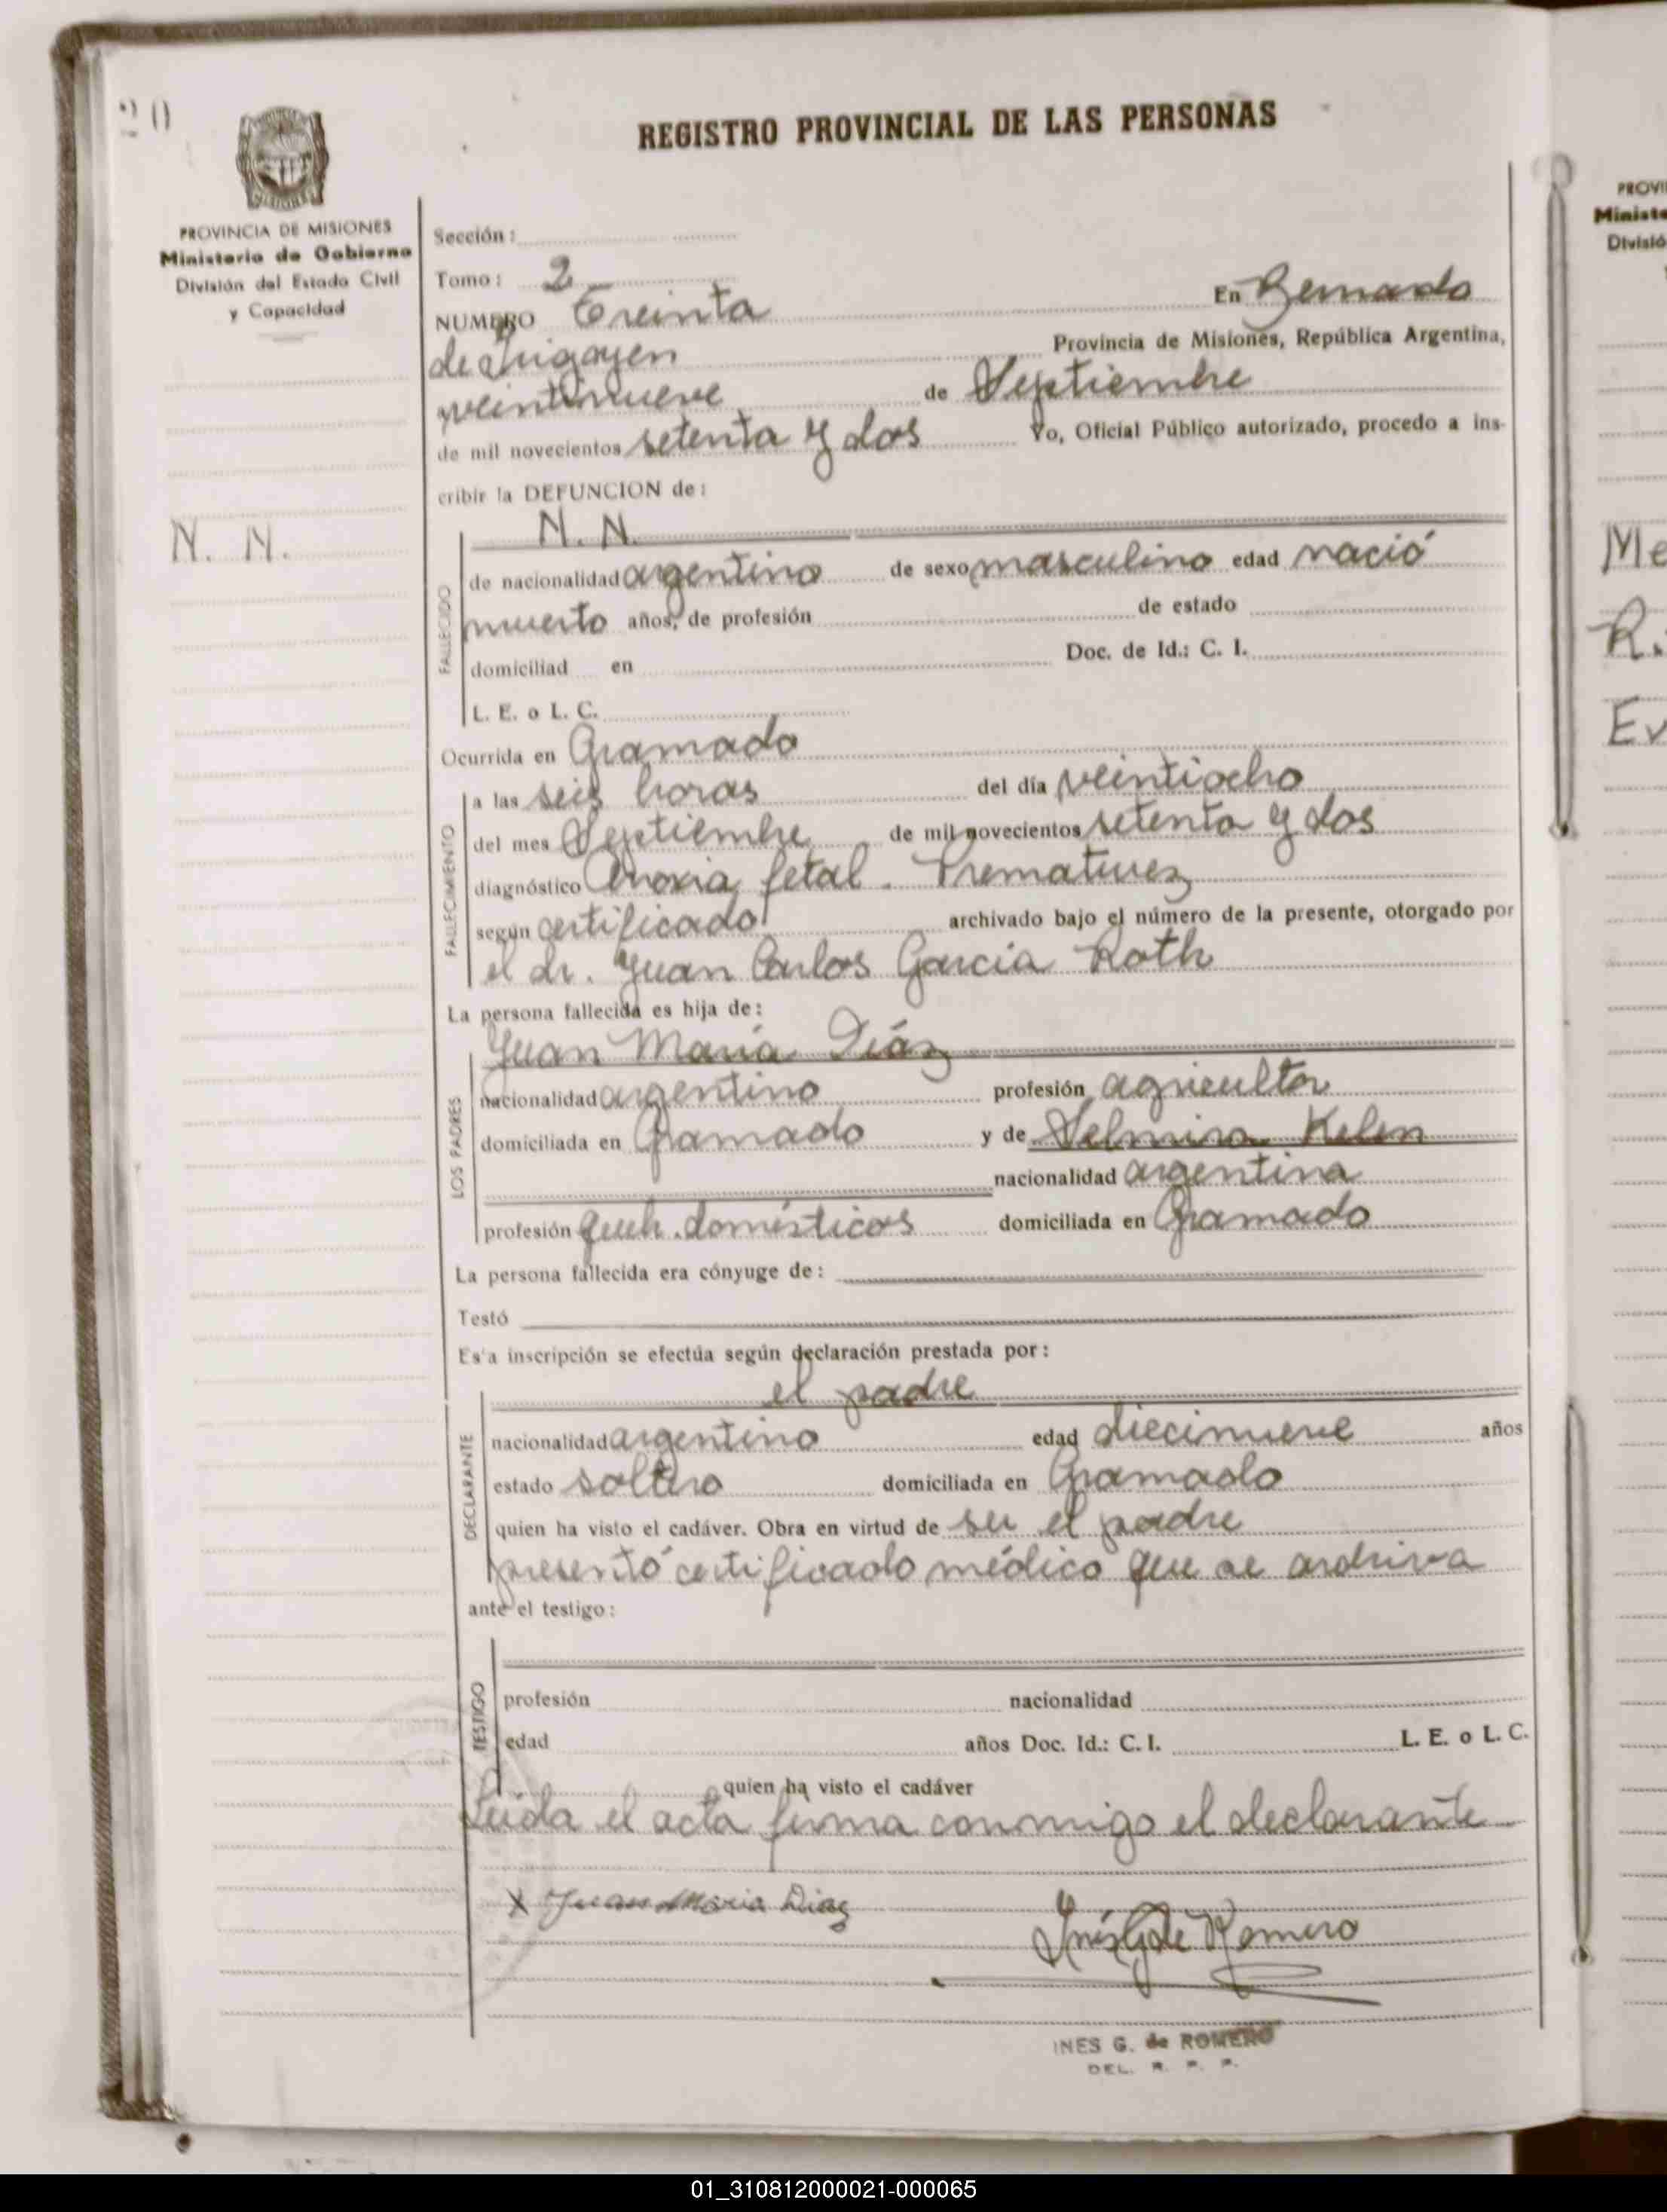 20
REGISTRO PROVINCIAL DE LAS PERSONAS
PROVINCIA DE MISIONES
Ministerio de Gobierno
División del Estado Civil
y Capacidad
N. N.
Sección:
Tomo: 2
NUMERO Treinta En Bernardo
de Irigoyen Provincia de Misiones, República Argentina,
veintinueve de Septiembre
de mil novecientos setenta y dos Yo, Oficial Público autorizado, procedo a ins-
cribir la DEFUNCION de:
N. N.
FALLECIDO
de nacionalidad argentino de sexo masculino edad nació
muerto años, de profesión de estado
domiciliad en Doc. de Id.: C. I.
L. E. o L. C.
Ocurrida en Gramado
FALLECIMIENTO
a las seis horas del día veintiocho
del mes Septiembre de mil novecientos setenta y dos
diagnóstico Anoxia fetal. Prematurez
según certificado archivado bajo el número de la presente, otorgado por
el dr. Juan Carlos García Roth
La persona fallecida es hija de:
LOS PADRES
Juan María Diáz
nacionalidad argentino profesión agricultor
domiciliada en Gramado y de Selmira Kelen
nacionalidad argentina
profesión queh. domésticos domiciliada en Gramado
La persona fallecida era cónyuge de:
Testó
Es'a inscripción se efectúa según declaración prestada por:
el padre
DECLARANTE
nacionalidad argentino edad diecinueve años
estado soltero domiciliada en Gramado
quien ha visto el cadáver. Obra en virtud de ser el padre
presentó certificado médico que se archiva
ante el testigo:
TESTIGO
profesión nacionalidad
edad años Doc. Id.: C. I. L. E. o L. C.
quien ha visto el cadáver
Leida el acta firma conmigo el declarante
X Juan Maria Diaz
Inés G de Romero
INES G. de ROMERO
DEL. R. P. P.
PROVI
Ministe
Divisió
Me
R.
Ev
01_310812000021-000065